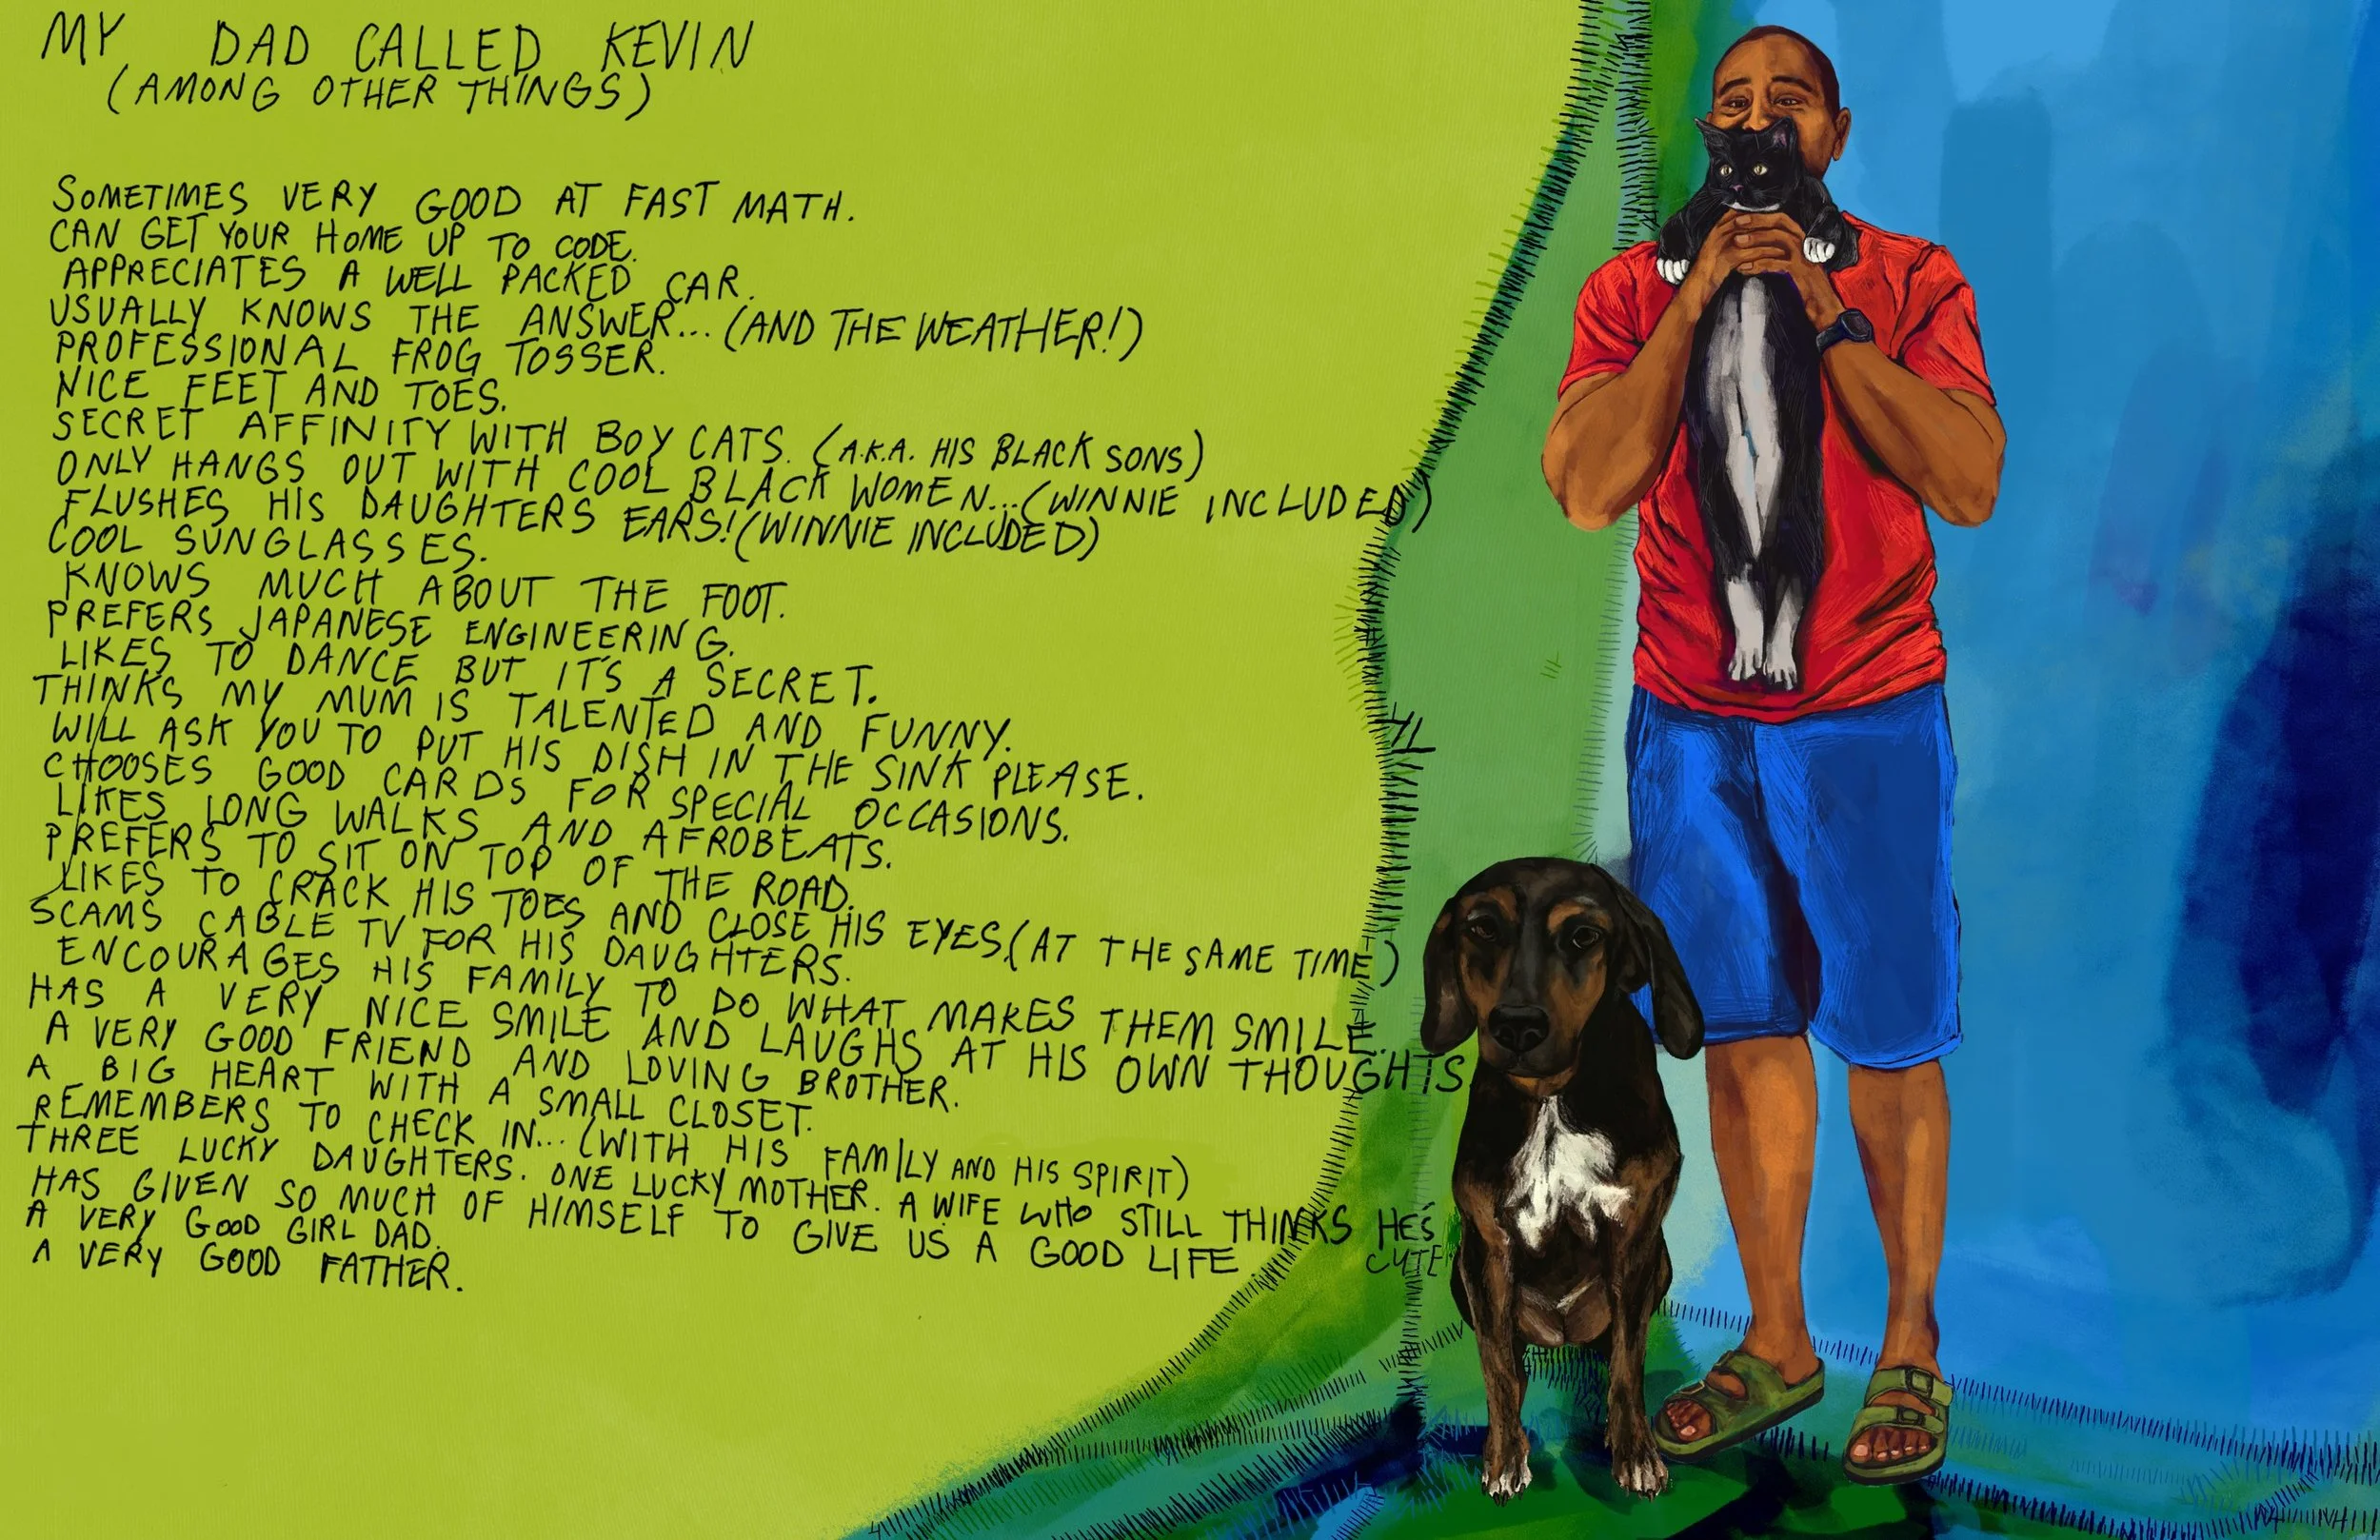 MY DAD CALLED KEVIN
(AMONG OTHER THINGS)
SOMETIMES VERY GOOD AT FAST MATH.
CAN GET YOUR HOME UP TO CODE.
APPRECIATES A WELL PACKED CAR.
USUALLY KNOWS THE ANSWER... (AND THE WEATHER!)
PROFESSIONAL FROG TOSSER.
NICE FEET AND TOES.
SECRET AFFINITY WITH BOY CATS. (A.K.A. HIS BLACK SONS)
ONLY HANGS OUT WITH COOL BLACK WOMEN... (WINNIE INCLUDED)
FLUSHES HIS DAUGHTERS EARS! (WINNIE INCLUDED)
COOL SUNGLASSES.
KNOWS MUCH ABOUT THE FOOT.
PREFERS JAPANESE ENGINEERING.
LIKES TO DANCE BUT IT'S A SECRET.
THINKS MY MUM IS TALENTED AND FUNNY.
WILL ASK YOU TO PUT HIS DISH IN THE SINK PLEASE.
CHOOSES GOOD CARDS FOR SPECIAL OCCASIONS.
LIKES LONG WALKS AND AFROBEATS.
PREFERS TO SIT ON TOP OF THE ROAD.
LIKES TO CRACK HIS TOES AND CLOSE HIS EYES. (AT THE SAME TIME)
SCAMS CABLE TV FOR HIS DAUGHTERS.
ENCOURAGES HIS FAMILY TO DO WHAT MAKES THEM SMILE.
HAS A VERY NICE SMILE AND LAUGHS AT HIS OWN THOUGHTS
A VERY GOOD FRIEND AND LOVING BROTHER.
A BIG HEART WITH A SMALL CLOSET.
REMEMBERS TO CHECK IN... (WITH HIS FAMILY AND HIS SPIRIT)
THREE LUCKY DAUGHTERS. ONE LUCKY MOTHER. A WIFE WHO STILL THINKS HE'S
CUTE
HAS GIVEN SO MUCH OF HIMSELF TO GIVE US A GOOD LIFE.
A VERY GOOD GIRL DAD.
A VERY GOOD FATHER.